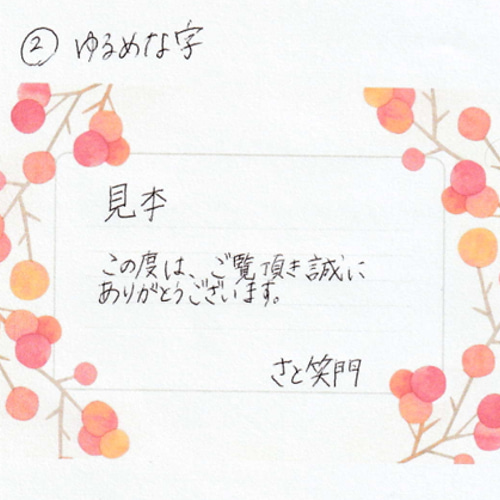 ② ゆるめな字
見本
この度は、ご覧頂き誠に
ありがとうございます。
さと笑門